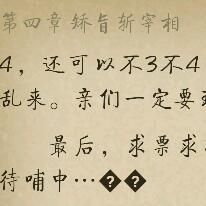 第四章矫旨斩宰相
4，还可以不3不4
乱来。亲们一定要
最后，求票求
待哺中…��